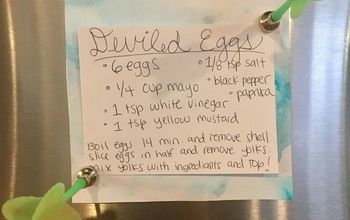 Deviled Eggs
• 6 eggs
• 1/8 tsp salt
• black pepper
• 1/4 cup mayo
• paprika
• 1 tsp white vinegar
• 1 tsp yellow mustard
Boil eggs 14 min. and remove shell
slice eggs in half and remove yolks.
Mix yolks with ingredients and top!